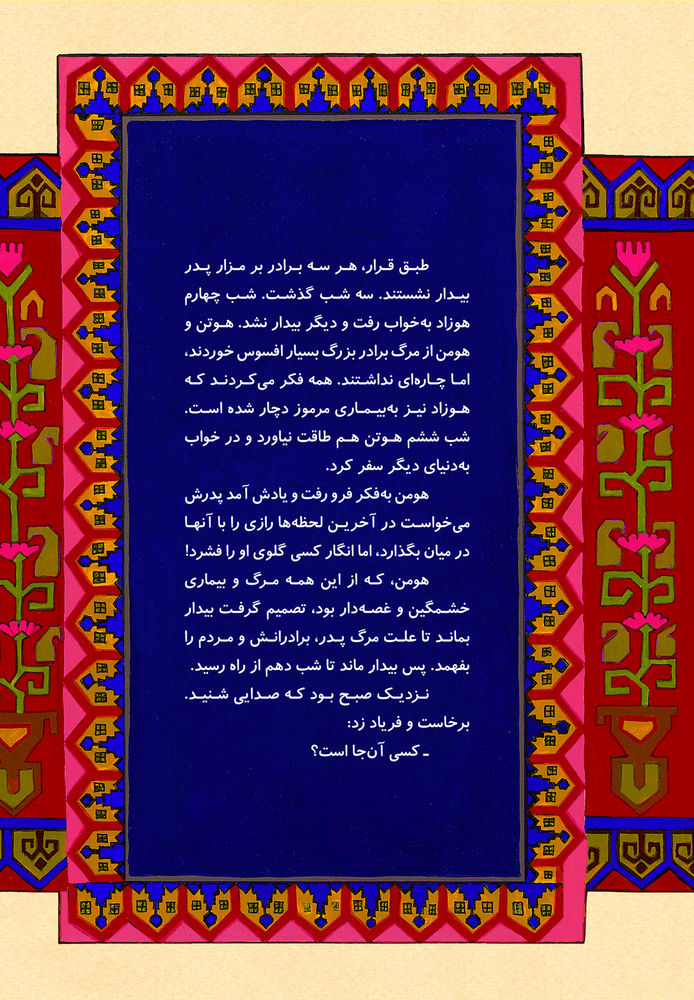 طبق قرار، هر سه برادر بر مزار پدر
بیدار نشستند. سه شب گذشت. شب چهارم
هوزاد به‌خواب رفت و دیگر بیدار نشد. هوتن و
هومن از مرگ برادر بزرگ بسیار افسوس خوردند،
اما چاره‌ای نداشتند. همه فکر می‌کردند که
هوزاد نیز به‌بیماری مرموز دچار شده است.
شب ششم هوتن هم طاقت نیاورد و در خواب
به‌دنیای دیگر سفر کرد.
هومن به‌فکر فرو رفت و یادش آمد پدرش
می‌خواست در آخرین لحظه‌ها رازی را با آنها
در میان بگذارد، اما انگار کسی گلوی او را فشرد!
هومن، که از این همه مرگ و بیماری
خشمگین و غصه‌دار بود، تصمیم گرفت بیدار
بماند تا علت مرگ پدر، برادرانش و مردم را
بفهمد. پس بیدار ماند تا شب دهم از راه رسید.
نزدیک صبح بود که صدایی شنید.
برخاست و فریاد زد:
ـ کسی آن‌جا است؟